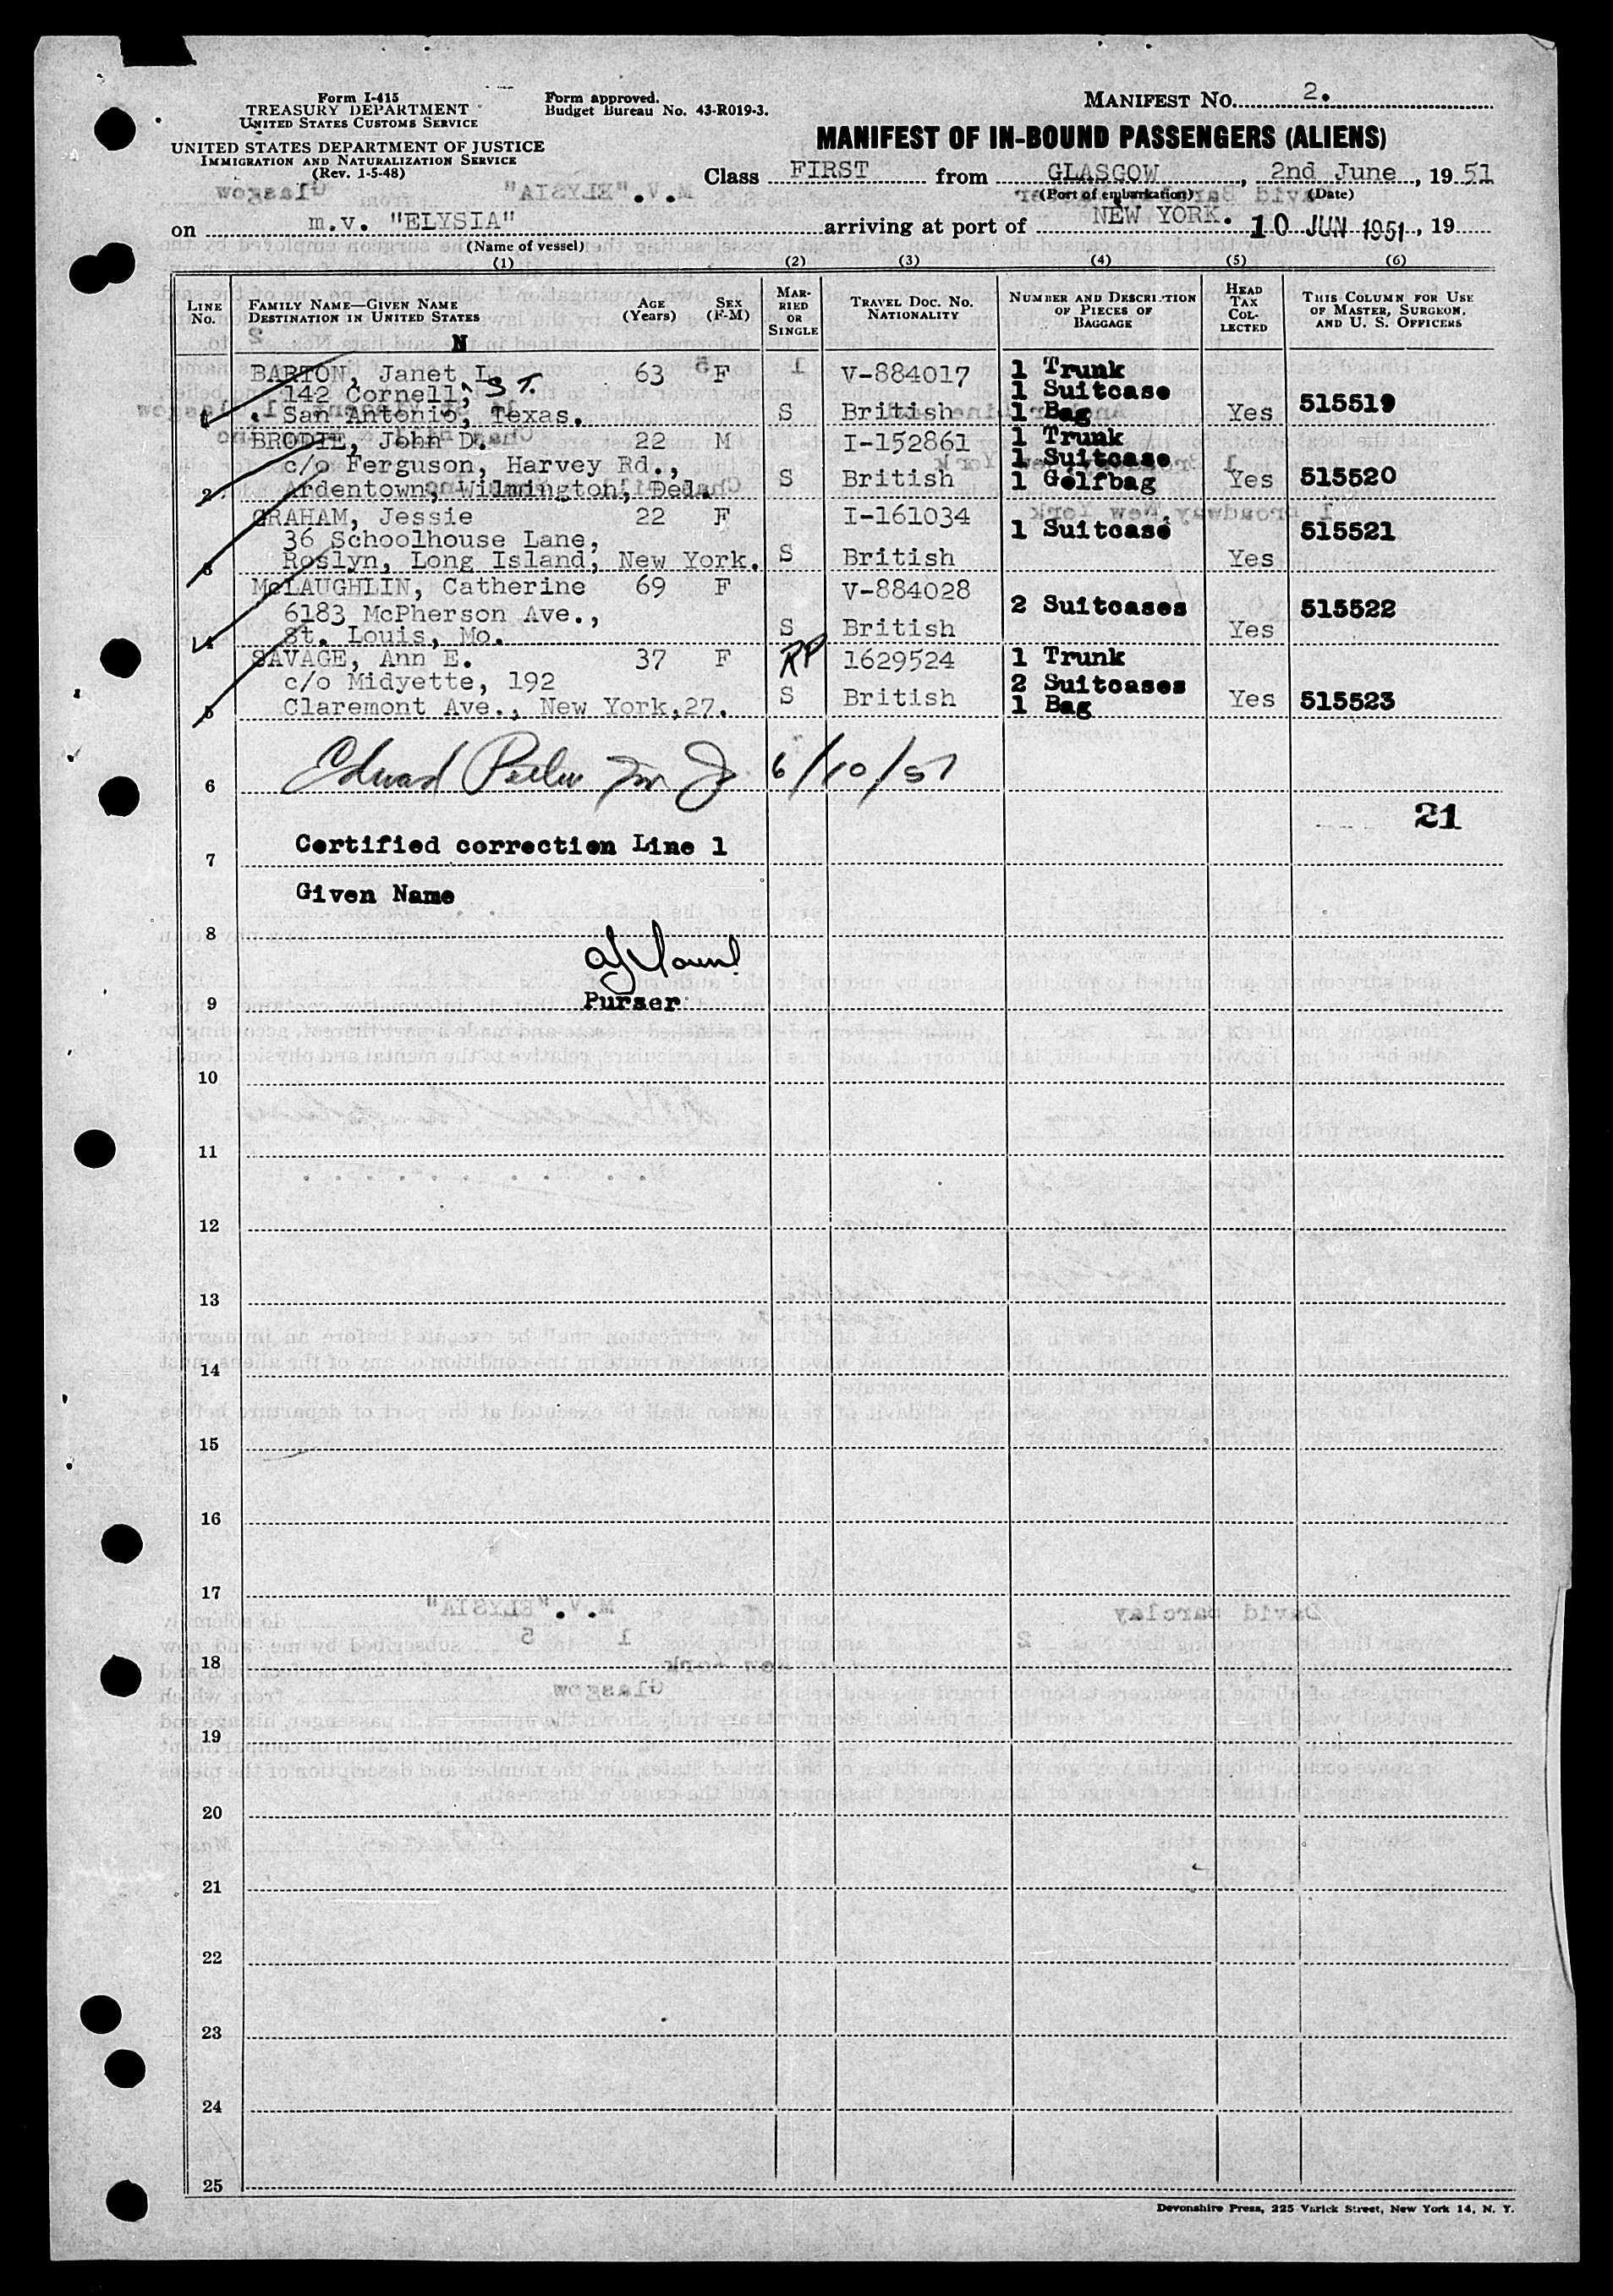 Form I-415
TREASURY DEPARTMENT
UNITED STATES CUSTOMS SERVICE
UNITED STATES DEPARTMENT OF JUSTICE
IMMIGRATION AND NATURALIZATION SERVICE
(Rev. 1-5-48)
Form approved.
Budget Bureau No. 43-R019-3.
MANIFEST NO. 2.
MANIFEST OF IN-BOUND PASSENGERS (ALIENS)
Class FIRST from GLASGOW, 2nd June, 1951
(Port of embarkation) (Date)
on m.v. "ELYSIA" arriving at port of NEW YORK. 10 JUN 1951, 19
(Name of vessel)
(1) (2) (3) (4) (5) (6)
LINE NO. FAMILY NAME—GIVEN NAME DESTINATION IN UNITED STATES AGE (Years) SEX (F-M) MARRIED OR SINGLE TRAVEL DOC. NO. NATIONALITY NUMBER AND DESCRIPTION OF PIECES OF BAGGAGE HEAD TAX COLLECTED THIS COLUMN FOR USE OF MASTER, SURGEON, AND U. S. OFFICERS
N
BARTON, Janet L. 63 F V-884017 1 Trunk
142 Cornell, ST. 1 Suitcase
1 San Antonio, Texas. S British 1 Bag Yes 515519
BRODIE, John D. 22 M I-152861 1 Trunk
c/o Ferguson, Harvey Rd., 1 Suitcase
2 Ardentown, Wilmington, Del. S British 1 Golfbag Yes 515520
GRAHAM, Jessie 22 F I-161034
36 Schoolhouse Lane, 1 Suitcase 515521
3 Roslyn, Long Island, New York. S British Yes
McLAUGHLIN, Catherine 69 F V-884028
6183 McPherson Ave., 2 Suitcases 515522
4 St. Louis, Mo. S British Yes
SAVAGE, Ann E. 37 F RP 1629524 1 Trunk
c/o Midyette, 192 2 Suitcases
5 Claremont Ave., New York,27. S British 1 Bag Yes 515523
6 Edward 6/10/51
21
7 Certified correction Line 1
Given Name
8
9 Purser
10
11
12
13
14
15
16
17
18
19
20
21
22
23
24
25
Devonshire Press, 225 Varick Street, New York 14, N. Y.